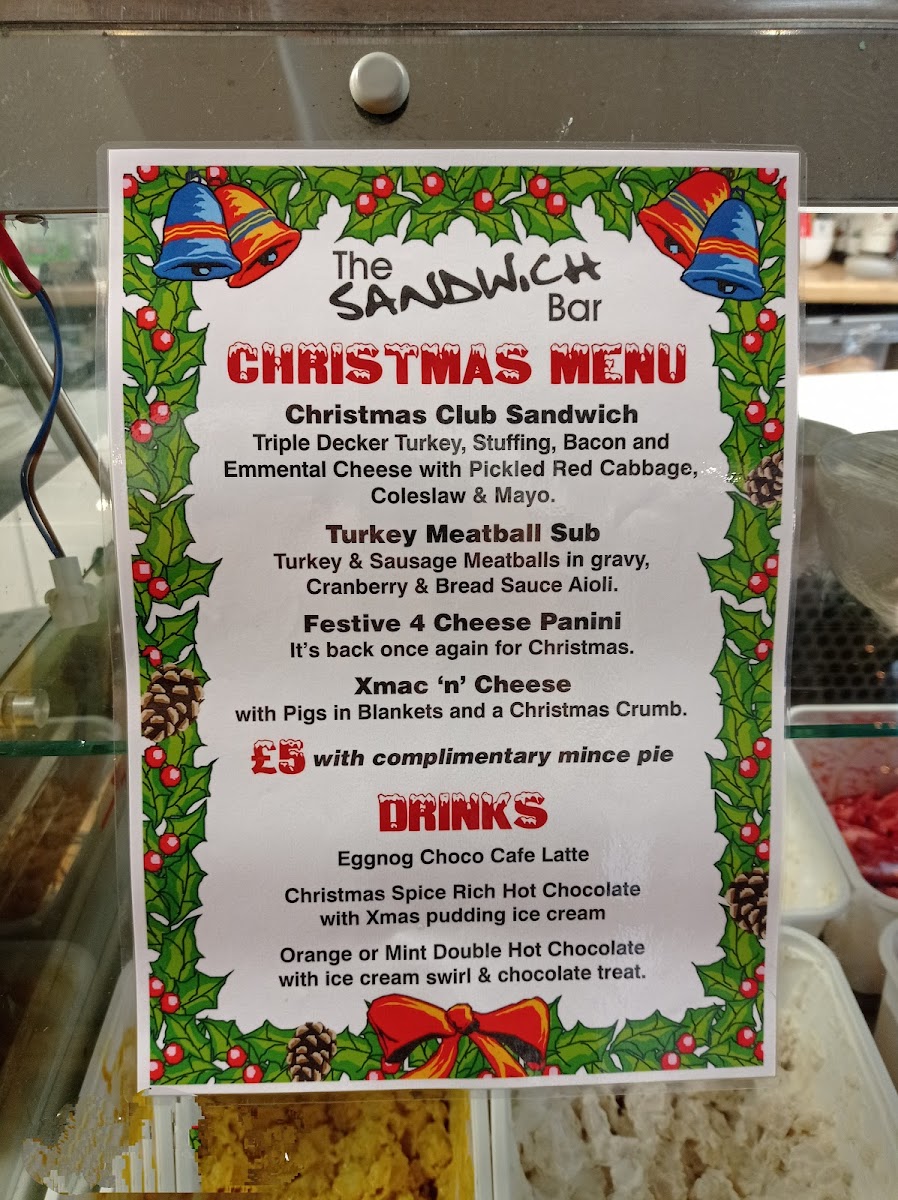 The
SANDWiCH
Bar
CHRISTMAS MENU
Christmas Club Sandwich
Triple Decker Turkey, Stuffing, Bacon and
Emmental Cheese with Pickled Red Cabbage,
Coleslaw & Mayo.
Turkey Meatball Sub
Turkey & Sausage Meatballs in gravy,
Cranberry & Bread Sauce Aioli.
Festive 4 Cheese Panini
It's back once again for Christmas.
Xmac 'n' Cheese
with Pigs in Blankets and a Christmas Crumb.
£5 with complimentary mince pie
DRINKS
Eggnog Choco Cafe Latte
Christmas Spice Rich Hot Chocolate
with Xmas pudding ice cream
Orange or Mint Double Hot Chocolate
with ice cream swirl & chocolate treat.